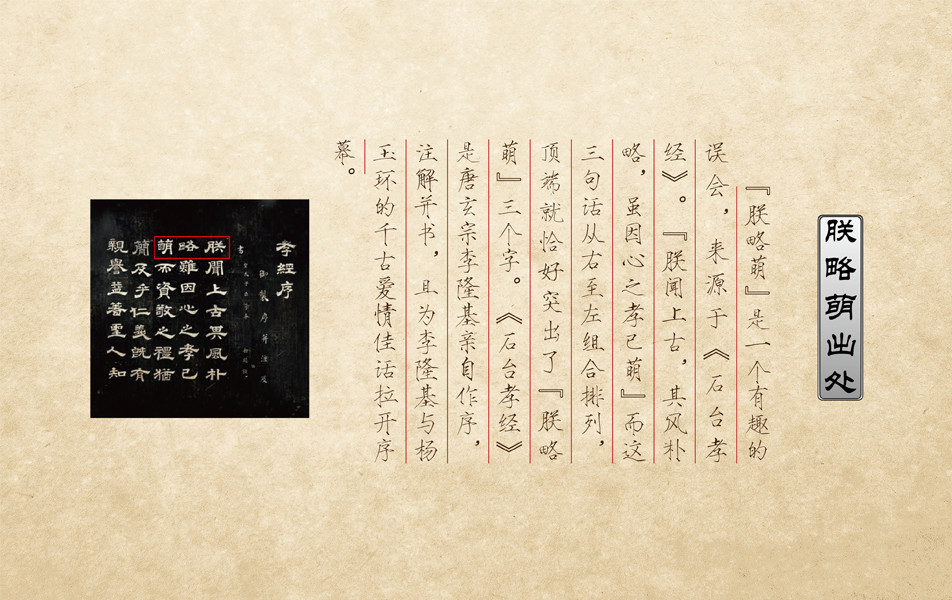 朕略萌出处
『朕略萌』是一个有趣的
误会，来源于《石台孝
经》。『朕闻上古，其风朴
略，虽因心之孝已萌』而这
三句话从右至左组合排列，
顶端就恰好突出了『朕略
萌』三个字。《石台孝经》
是唐玄宗李隆基亲自作序，
注解并书，且为李隆基与杨
玉环的千古爱情佳话拉开序
幕。
孝經序
御製序并注及
書
朕聞上古其風朴
略雖因心之孝已
萌而資敬之禮猶
簡及乎仁義既有
親譽益著聖人知